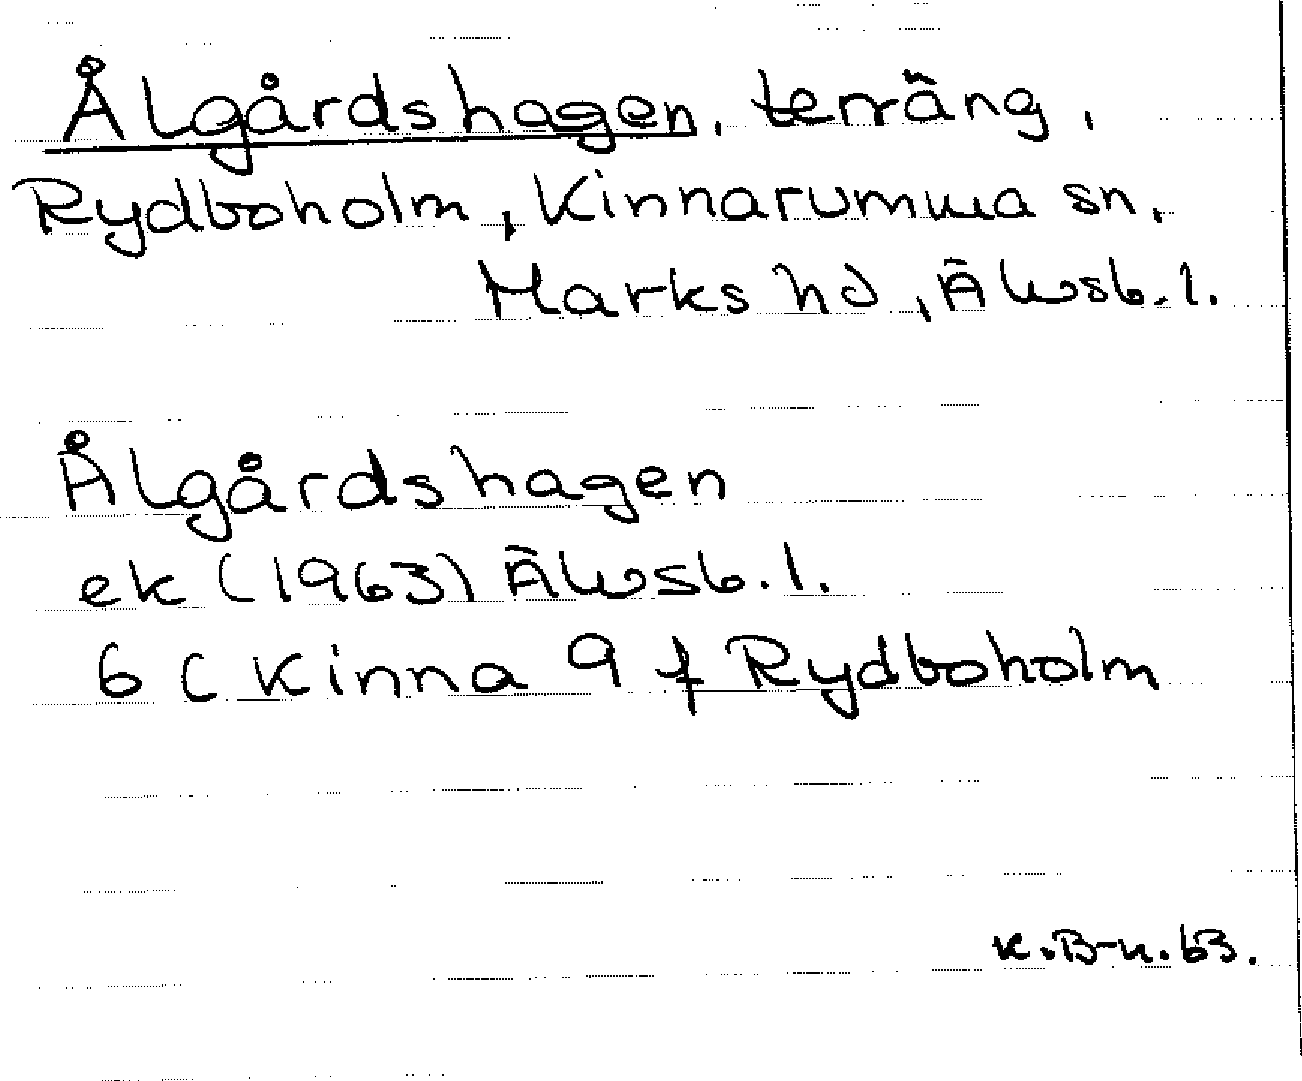 Ålgårdshagen, terräng,
Rydboholm, Kinnarumma sn,
Marks hd, Älvsb. l.
Ålgårdshagen
ek (1963) Älvsb. l.
6 C Kinna 9 f Rydboholm
K.B-n. 63.